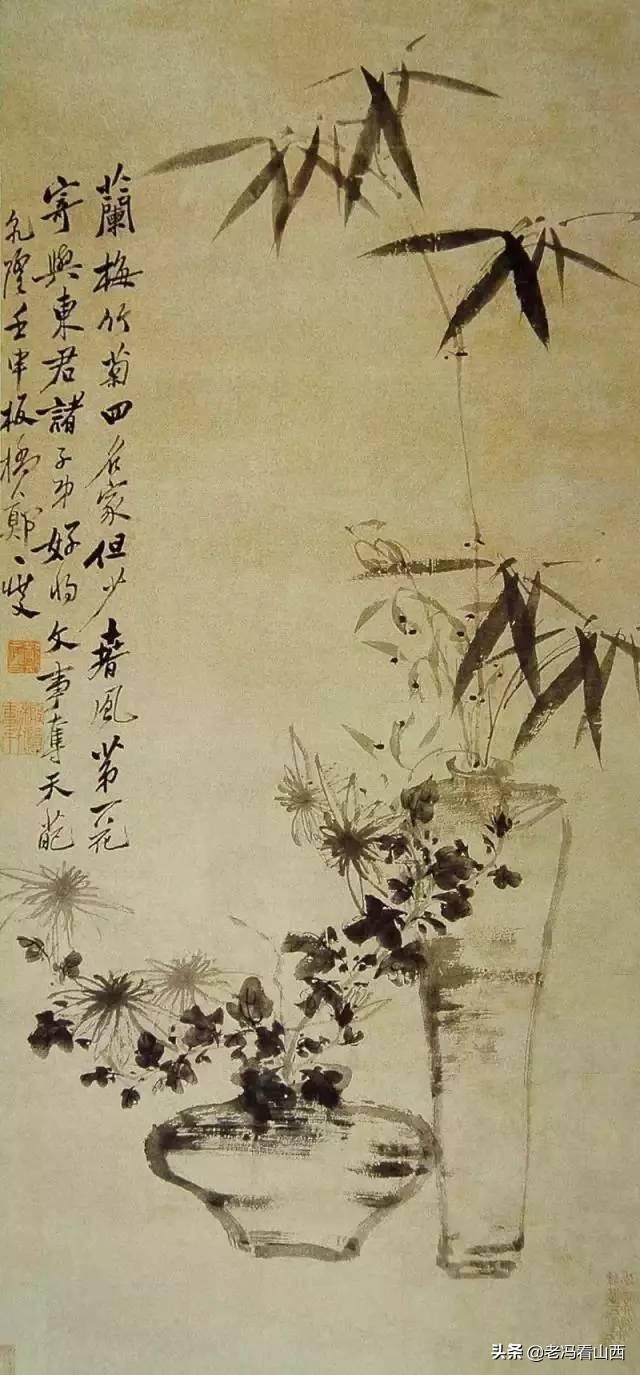 蘭梅竹菊四名家但少春風第一花
寄與東君諸子弟好將文事奪天葩
乾隆壬申板橋鄭燮
头条 @老冯看山西